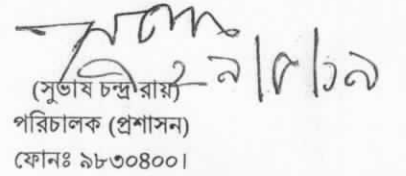 ৯/৫/১৯
(সুভাষ চন্দ্র রায়)
পরিচালক (প্রশাসন)
ফোনঃ ৯৮৩০৪০০১